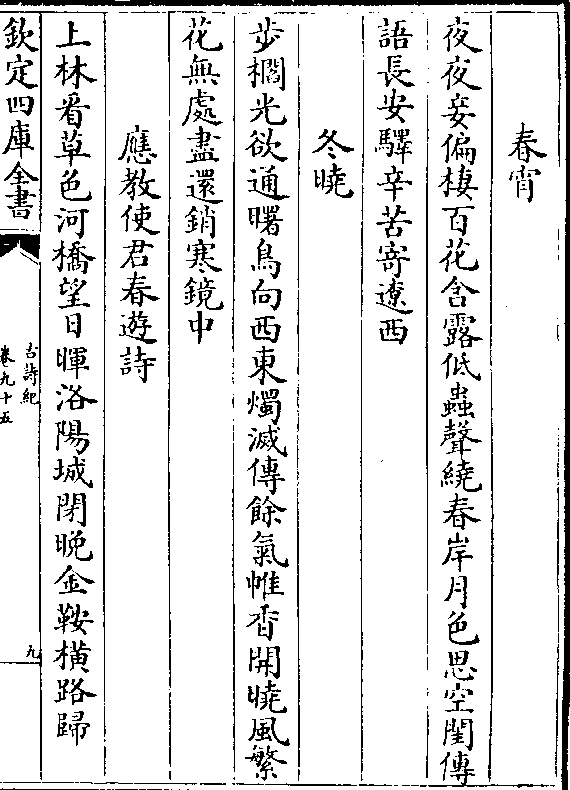 春宵
夜夜妾偏棲百花含露低蟲聲繞春岸月色思空閨傳
語長安驛辛苦寄遼西
冬曉
步櫩光欲通曙鳥向西東燭滅傳餘氣帷香開曉風繁
花無處盡還銷寒鏡中
應教使君春遊詩
上林看草色河橋望日暉洛陽城閉晚金鞍横路歸
欽定四庫全書
古詩紀
卷九十五
九